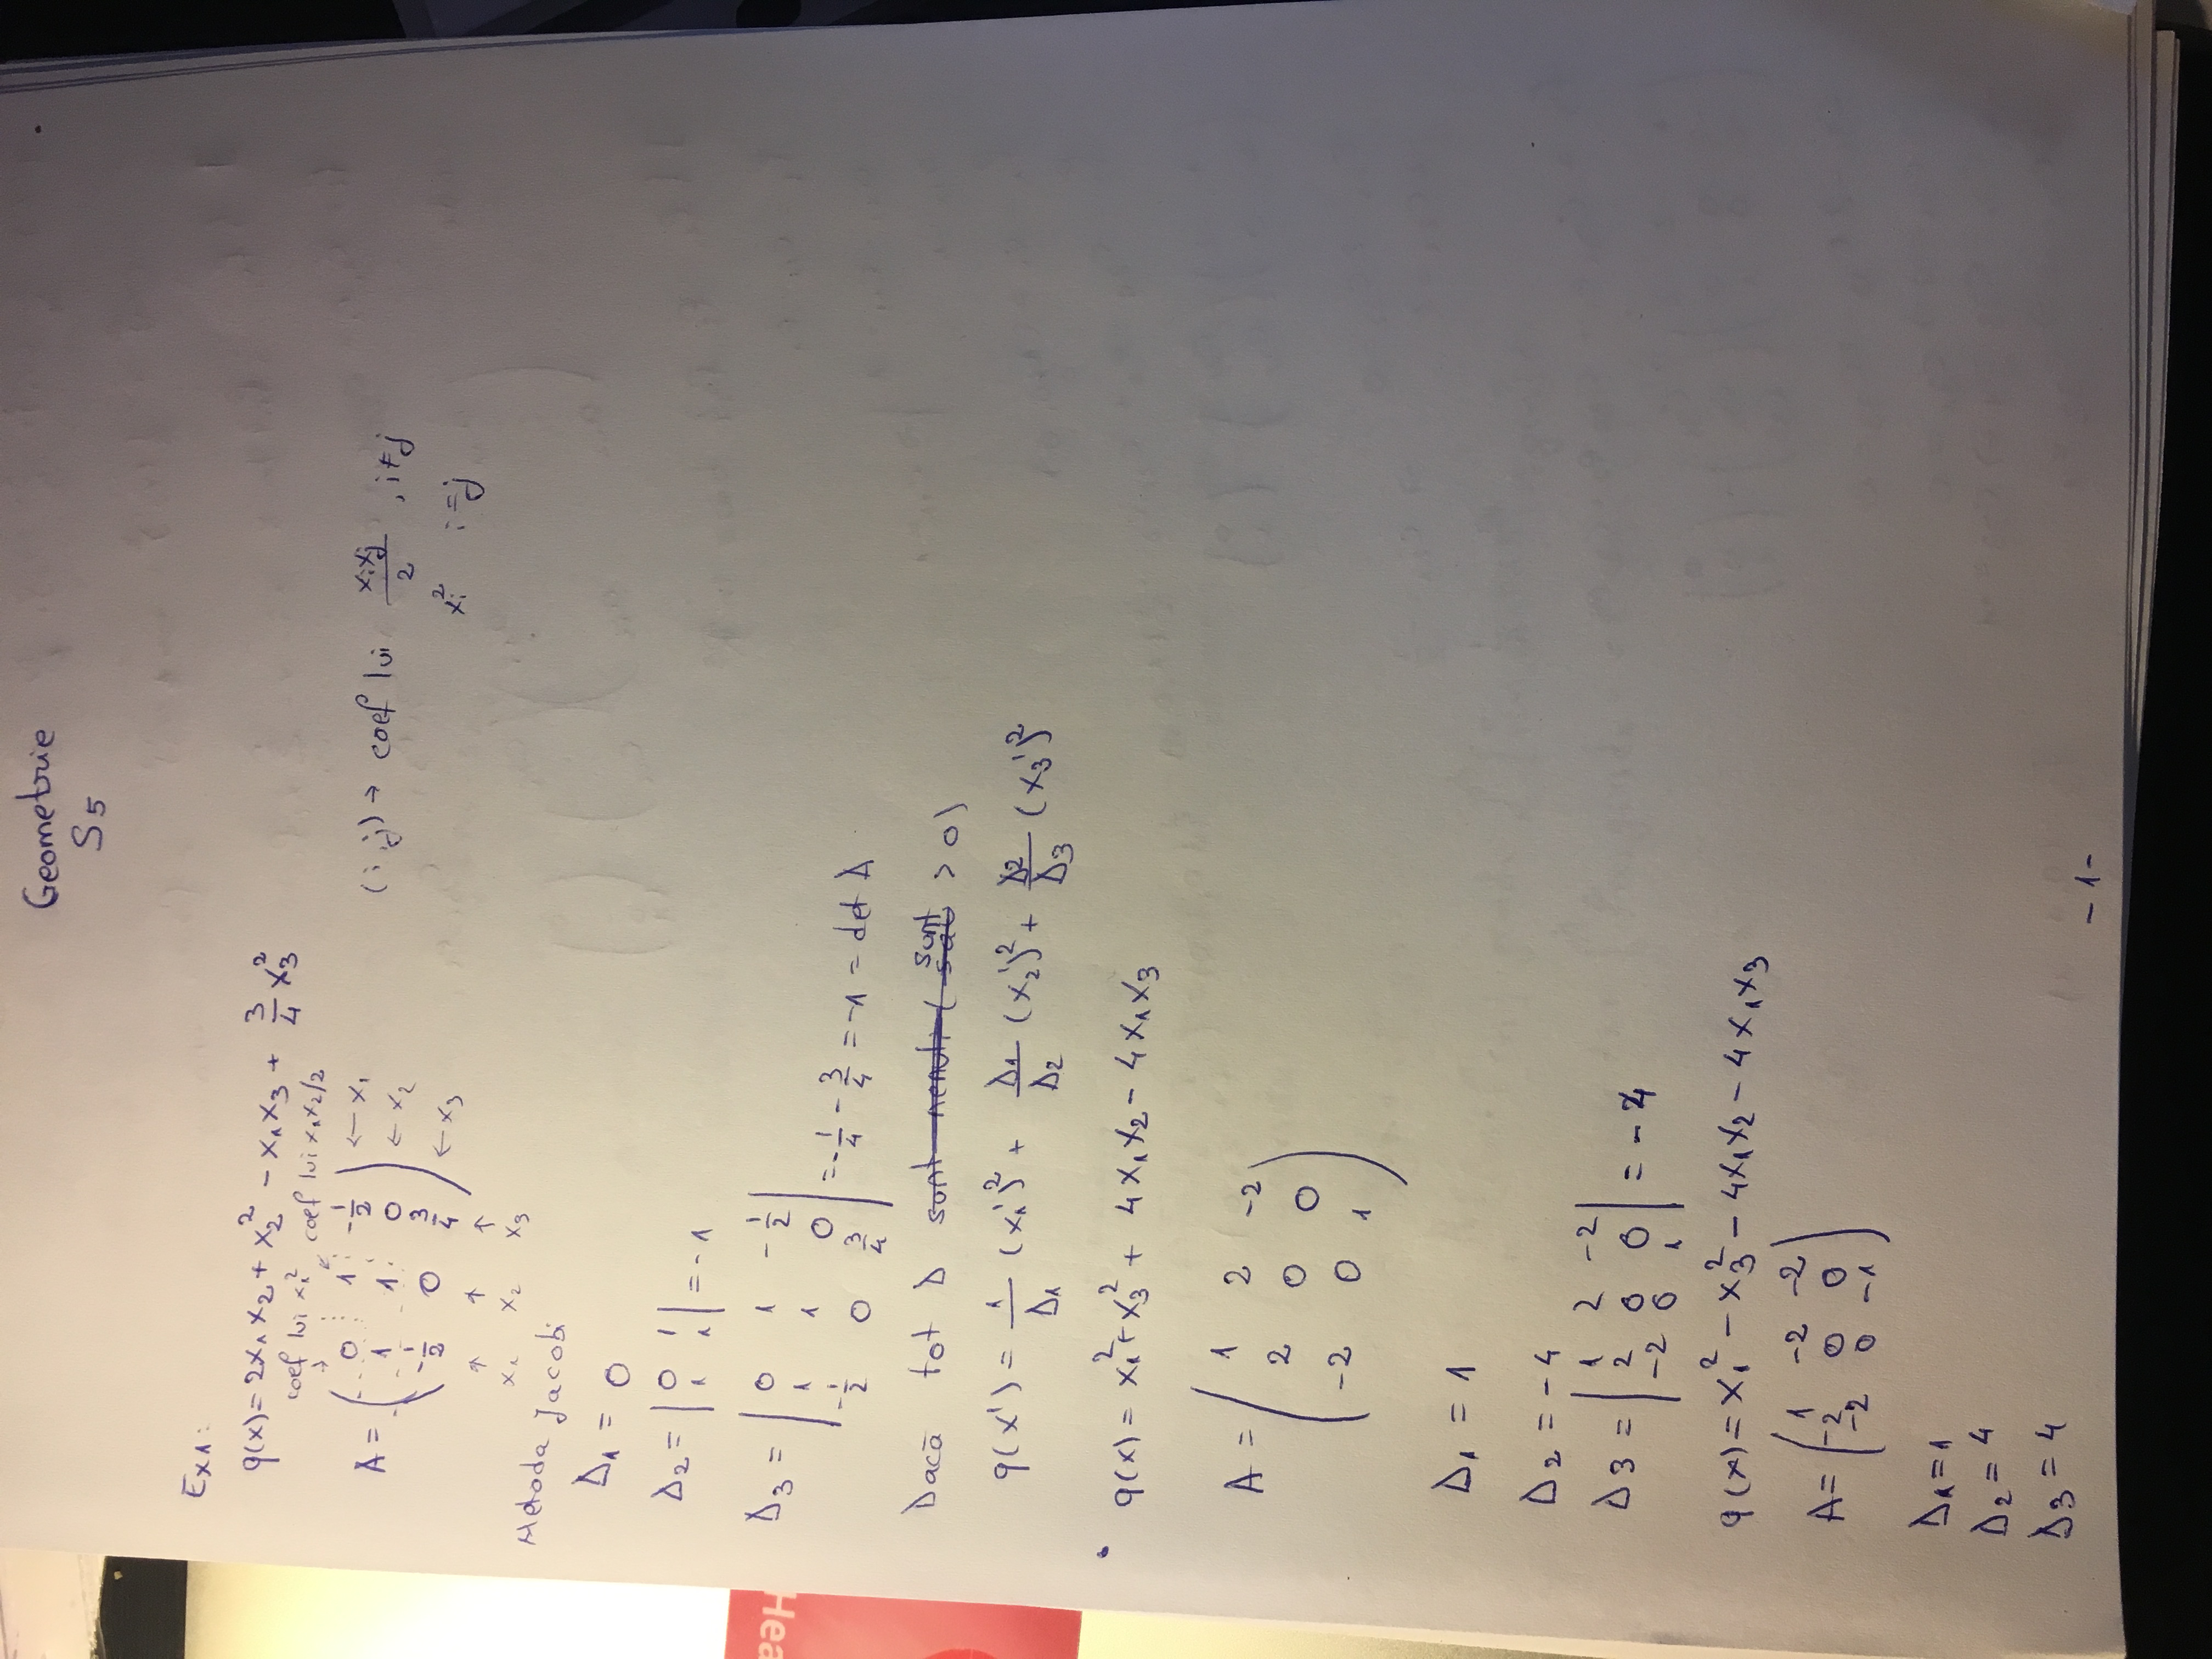 Geometrie
S5
Ex1:
q(x) = 2x₁x₂ + x₂² - x₁x₃ + 3/4 x₃²
coef lui x₁² coef lui x₁x₂/2
A = ( 0 1 -1/2 ) ← x₁
( 1 1 0 ) ← x₂
( -1/2 0 3/4 ) ← x₃
↑ ↑ ↑
x₁ x₂ x₃
(i,j) → coef lui xᵢxⱼ/2 , i≠j
xᵢ² i=j
Metoda Jacobi
Δ₁ = 0
Δ₂ = | 0 1 |
| 1 1 | = -1
Δ₃ = | 0 1 -1/2 |
| 1 1 0 |
| -1/2 0 3/4 | = -1/4 - 3/4 = -1 = det A
Dacă tot Δ sunt nenuli ( sunt > 0)
q(x') = 1/Δ₁ (x₁')² + Δ₁/Δ₂ (x₂')² + Δ₂/Δ₃ (x₃')²
• q(x) = x₁² + x₃² + 4x₁x₂ - 4x₁x₃
A = ( 1 2 -2 )
( 2 0 0 )
( -2 0 1 )
Δ₁ = 1
Δ₂ = -4
Δ3 = | 1 2 -2 |
| 2 0 0 |
| -2 0 1 | = -4
q(x) = x₁² - x₃² - 4x₁x₂ - 4x₁x₃
A = ( 1 -2 -2 )
( -2 0 0 )
( -2 0 -1 )
Δ₁ = 1
Δ₂ = 4
Δ3 = 4
- 1 -
Hea